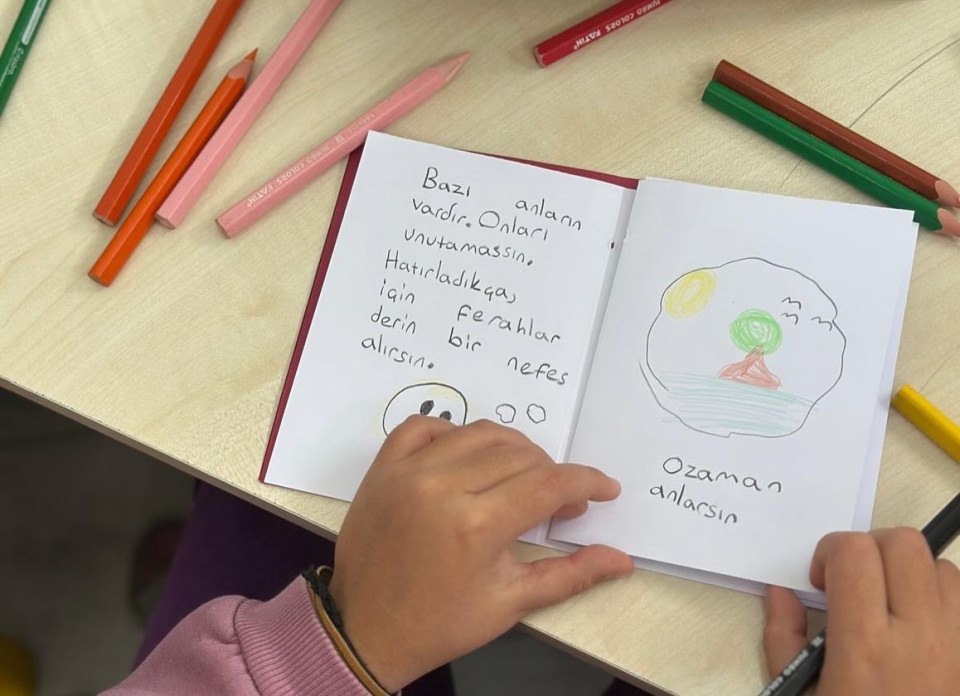 Bazı anların
vardır. Onları
unutamassın.
Hatırladıkça,
için ferahlar
derin bir nefes
alırsın.
Ozaman
anlarsın
JUMBO COLORS FATİH
JUMBO COLORS FATİH